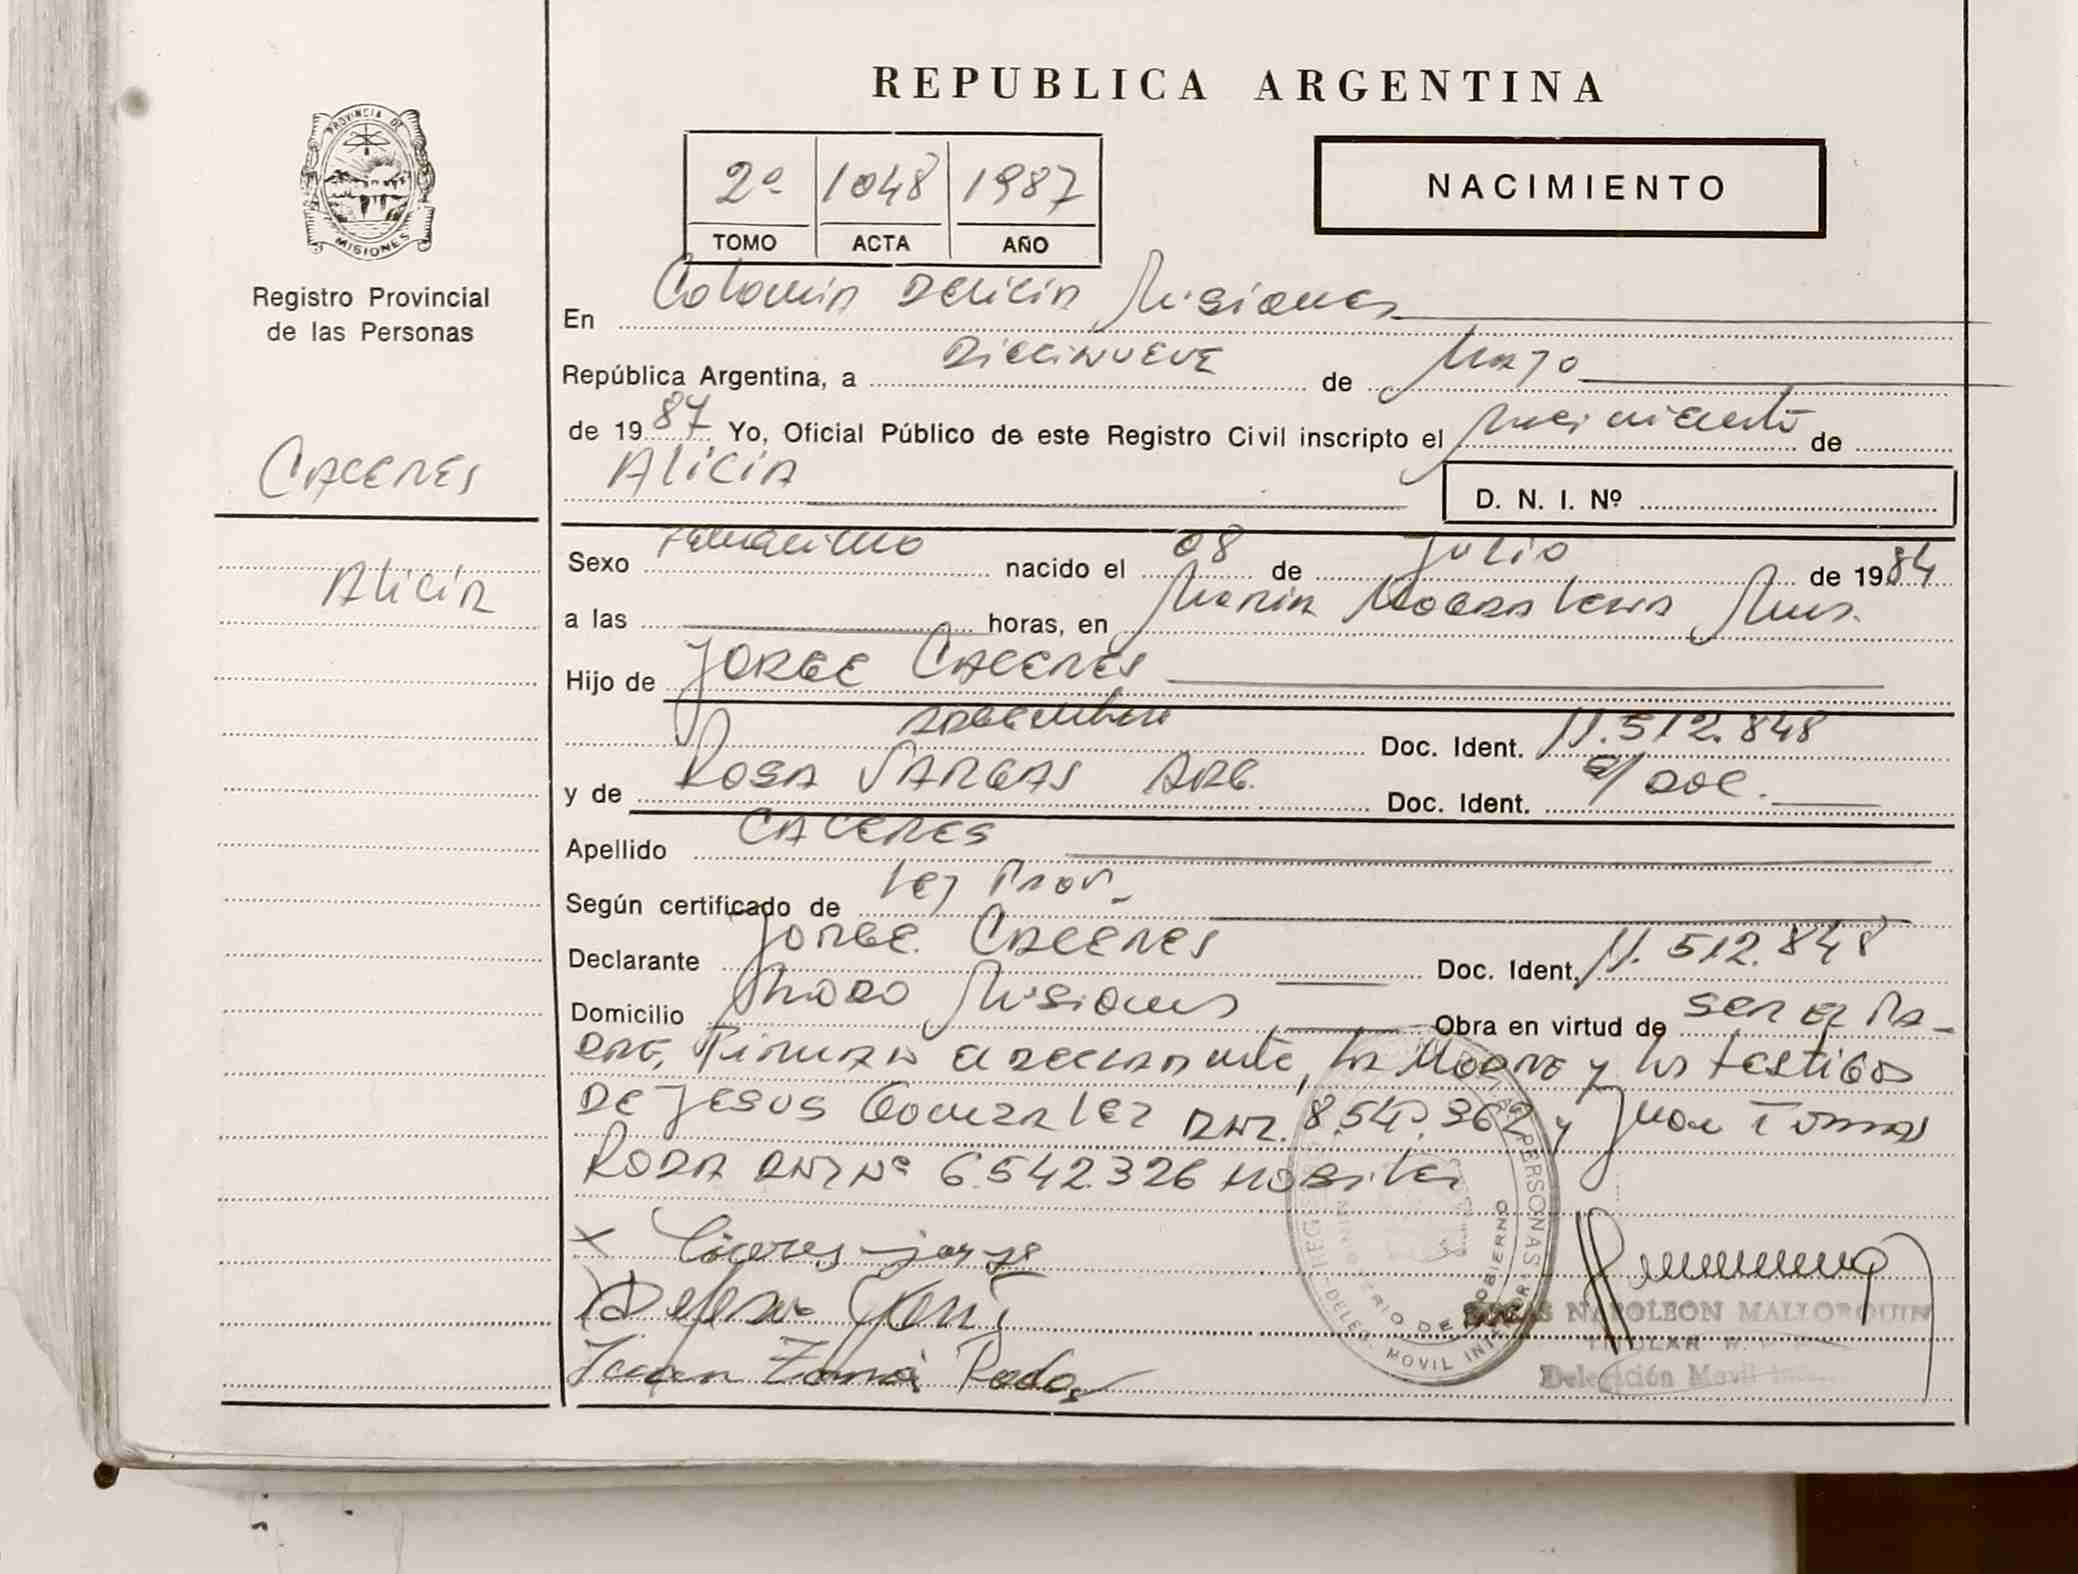 REPUBLICA ARGENTINA
PROVINCIA DE
MISIONES
Registro Provincial
de las Personas
2ª 1048 1987
TOMO ACTA AÑO
NACIMIENTO
En Colonia Delicia Misiones
República Argentina, a Diecinueve de Mayo
de 1987 Yo, Oficial Público de este Registro Civil inscripto el Nacimiento de
Alicia
D. N. I. Nº
CACERES
Alicia
Sexo Femenino nacido el 08 de Julio de 1984
a las horas, en Maria Magdalena Mnes.
Hijo de JORGE CACERES
Doc. Ident. 11.512.848
y de ROSA VARGAS ARG. Doc. Ident. s/ Doc.
Apellido CACERES
Según certificado de Ley Prov.
Declarante JORGE CACERES Doc. Ident. 11.512.848
Domicilio Misiones Obra en virtud de ser el Pa-
dre, Firman el declarante, la Madre y los testigos
De JESUS Gonzalez DNI. 8.549.362 y Juan Tomas
RODA DNI Nº 6.542.326
x Cáceres jorge
Juan Roda
PERSONAS
MINISTERIO DE GOBIERNO
DELEG. MOVIL INTERIOR
NAPOLEON MALLORQUIN
TITULAR
Delegación Movil